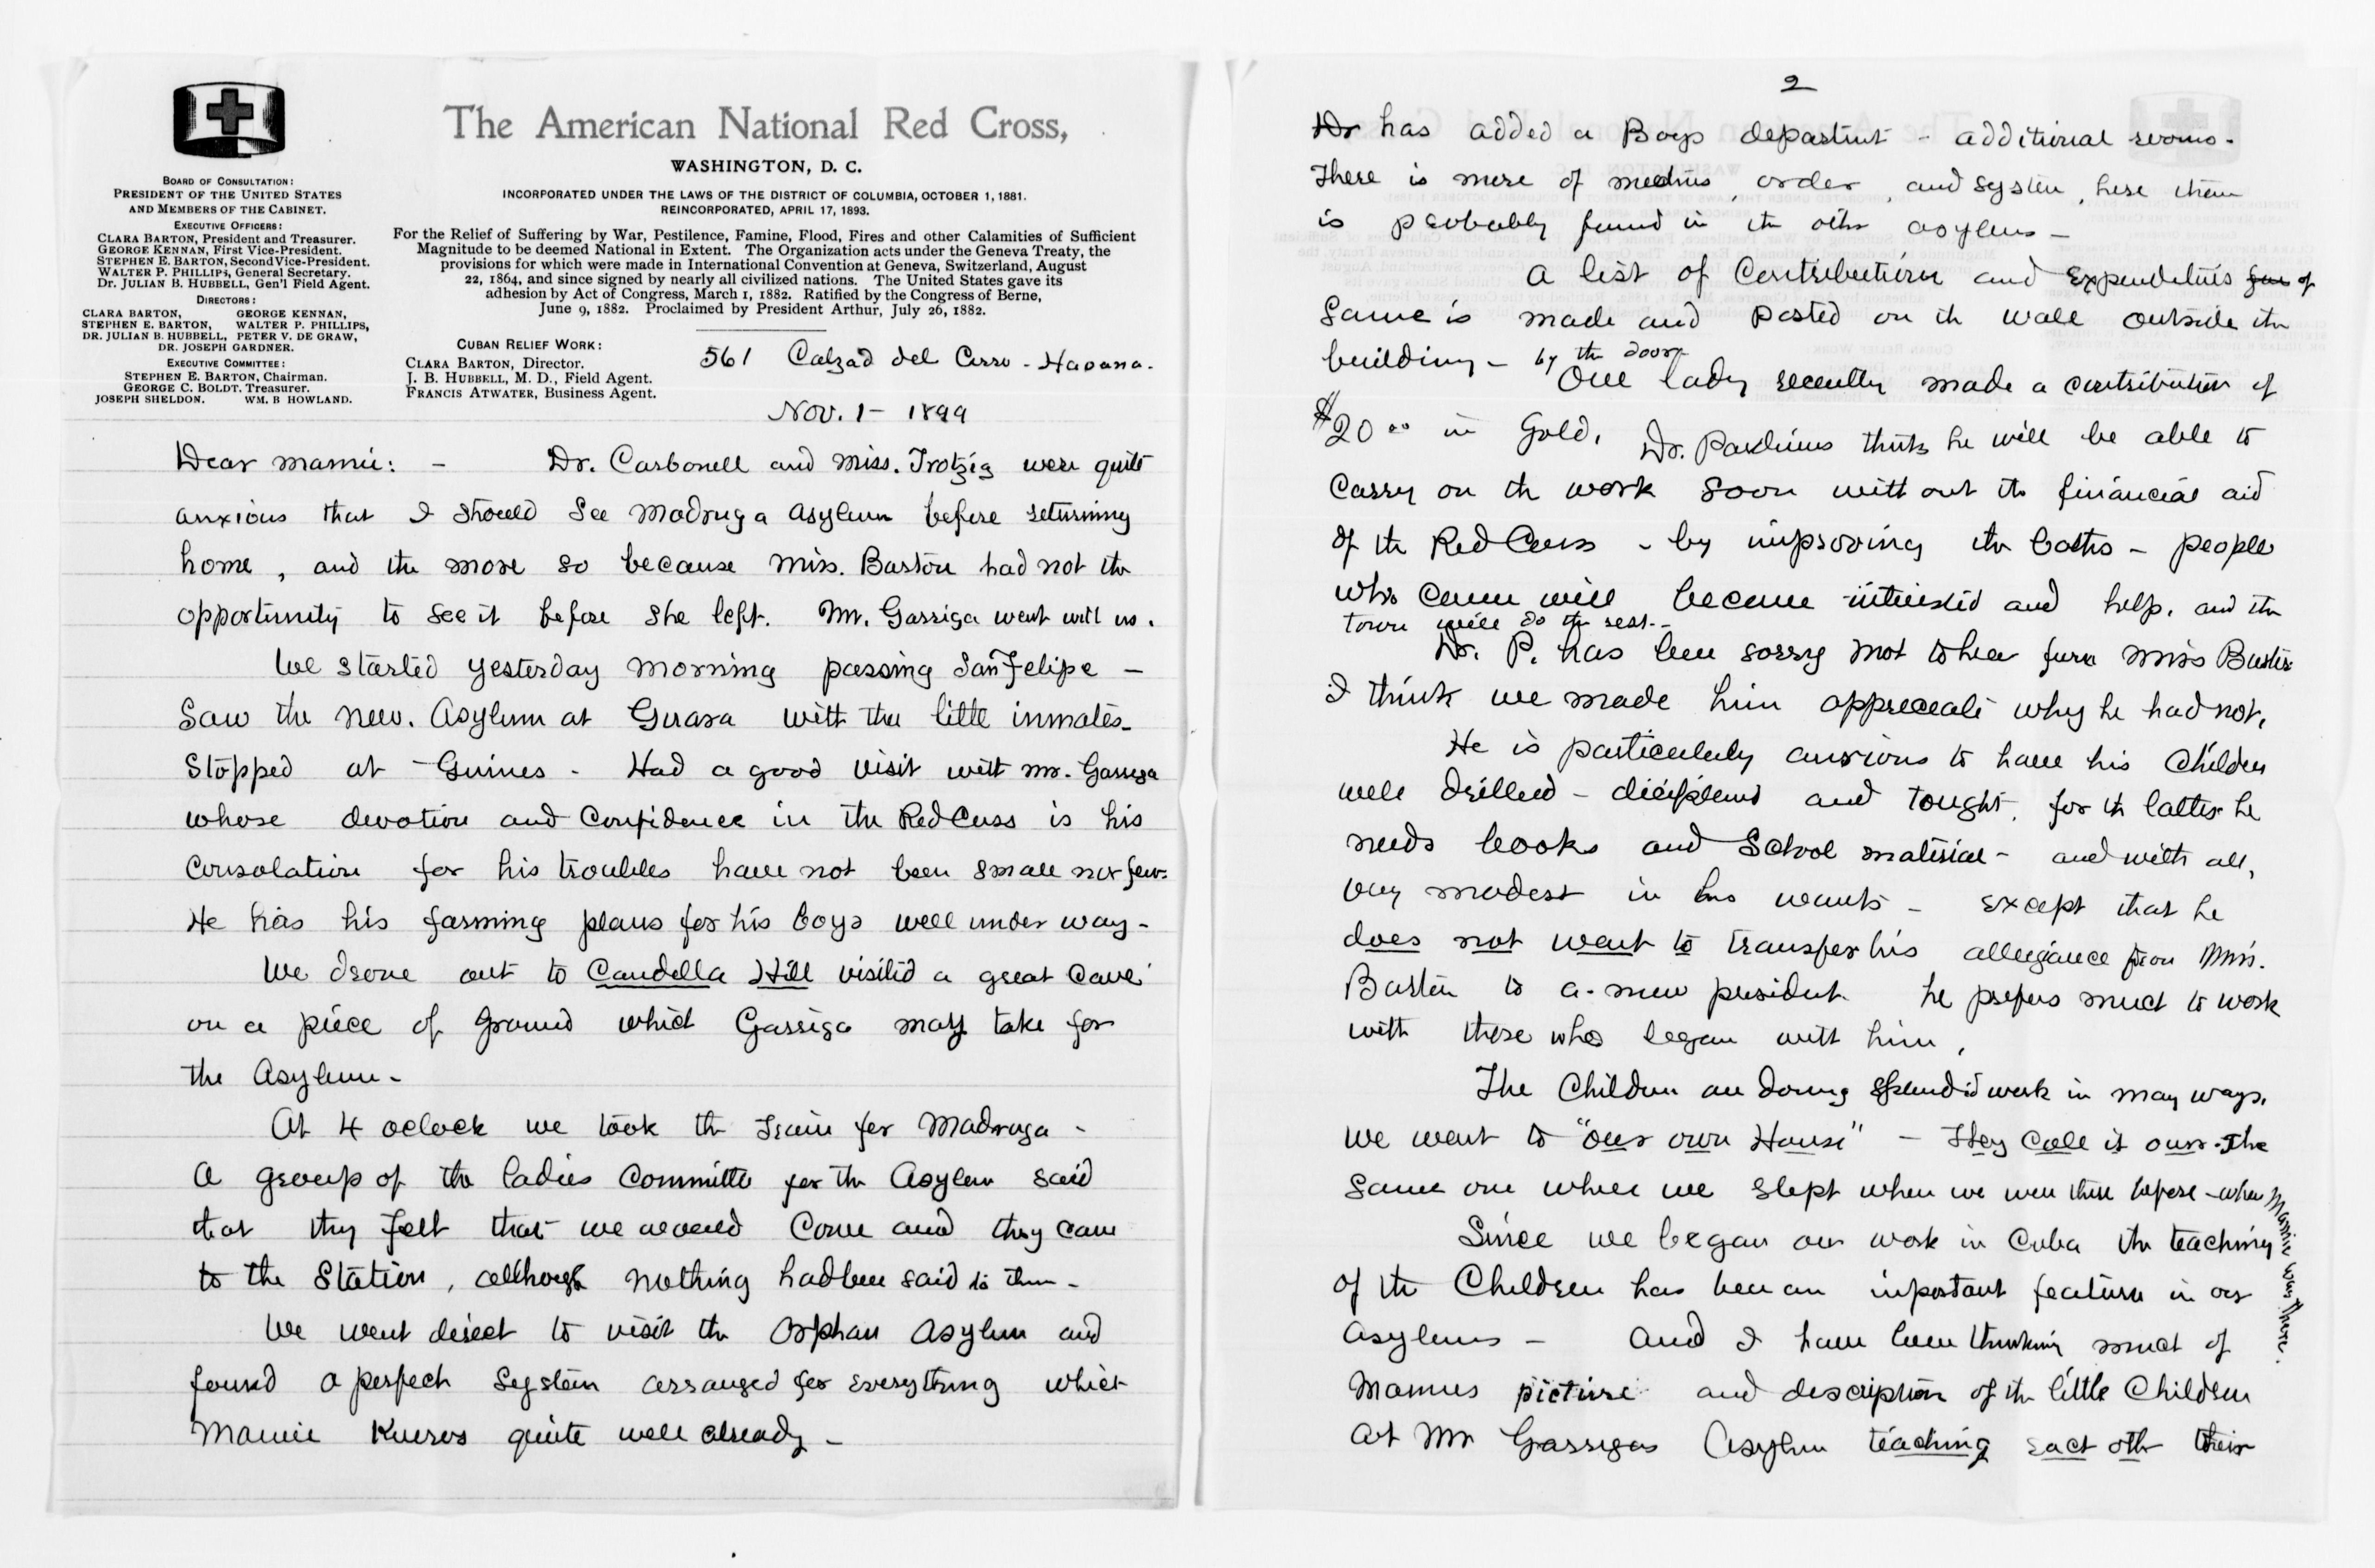 The American National Red Cross,
WASHINGTON, D. C.
INCORPORATED UNDER THE LAWS OF THE DISTRICT OF COLUMBIA, OCTOBER 1, 1881.
REINCORPORATED, APRIL 17, 1893.
For the Relief of Suffering by War, Pestilence, Famine, Flood, Fires and other Calamities of Sufficient
Magnitude to be deemed National in Extent. The Organization acts under the Geneva Treaty, the
provisions for which were made in International Convention at Geneva, Switzerland, August
22, 1864, and since signed by nearly all civilized nations. The United States gave its
adhesion by Act of Congress, March 1, 1882. Ratified by the Congress of Berne,
June 9, 1882. Proclaimed by President Arthur, July 26, 1882.
BOARD OF CONSULTATION:
PRESIDENT OF THE UNITED STATES
AND MEMBERS OF THE CABINET.
EXECUTIVE OFFICERS:
CLARA BARTON, President and Treasurer.
GEORGE KENNAN, First Vice-President.
STEPHEN E. BARTON, Second Vice-President.
WALTER P. PHILLIPS, General Secretary.
Dr. JULIAN B. HUBBELL, Gen'l Field Agent.
DIRECTORS:
CLARA BARTON, GEORGE KENNAN,
STEPHEN E. BARTON, WALTER P. PHILLIPS,
DR. JULIAN B. HUBBELL, PETER V. DE GRAW,
DR. JOSEPH GARDNER.
EXECUTIVE COMMITTEE:
STEPHEN E. BARTON, Chairman.
GEORGE C. BOLDT. Treasurer.
JOSEPH SHELDON. WM. B HOWLAND.
CUBAN RELIEF WORK:
CLARA BARTON, Director.
J. B. HUBBELL, M. D., Field Agent.
FRANCIS ATWATER, Business Agent.
561 Calzad del Cerro - Havana.
Nov. 1 - 1899
Dear Mamie: - Dr. Carbonell and Miss. Trotzig were quite
anxious that I should see Madruga Asylum before returning
home, and the more so because Miss. Barton had not the
opportunity to see it before she left. Mr. Garriga went with us.
We started yesterday morning passing San Felipe -
Saw the new. Asylum at Guara with the little inmates -
Stopped at Guines - Had a good visit with Mr. Garriga
whose devotion and confidence in the Red Cross is his
consolation for his troubles have not been small nor few.
He has his farming plans for his boys well under way -
We drove out to Candella Hill visited a great cave
on a piece of ground which Garriga may take for
the Asylum -
At 4 oclock we took the train for Madruga -
A group of the ladies committe for the Asylum said
that they felt that we would come and they came
to the station, although nothing had been said to them -
We went direct to visit the Orphan Asylum and
found a perfect system arranged for everything which
Mamie knows quite well already -
2
Dr has added a Boys departmt - additional rooms -
There is more of , order, and system, here than
is probably found in the other asylums -
A list of contributions and expenditures of
same is made and posted on the wall outside the
building - by the door -
One lady recently made a contribution of
$20 00 in Gold. Dr. thinks he will be able to
carry on the work soon without the financial aid
of the Red Cross - by improving the baths - people
who come will become interested and help, and the
town will do the rest. -
Dr. P. has been sorry not to hear from Miss Barton
I think we made him appreceate why he had not.
He is particularly anxious to have his Children
well drilled - and tought, for the latter he
needs books and School material - and with all,
very modest in his wants - except that he
does not want to transfer his allegiance from Miss.
Barton to a new president. he prefers much to work
with those who began with him.
The Children are doing splendid work in many ways.
We went to "our own House" - They call it ours - The
same one where we slept when we were there before - when Mamie was there.
Since we began our work in Cuba the teaching
of the Children has been an important feature in our
asylums - And I have been thinking much of
Mamies picture and description of the little Children
at Mr Garrigas Asylum teaching each other their